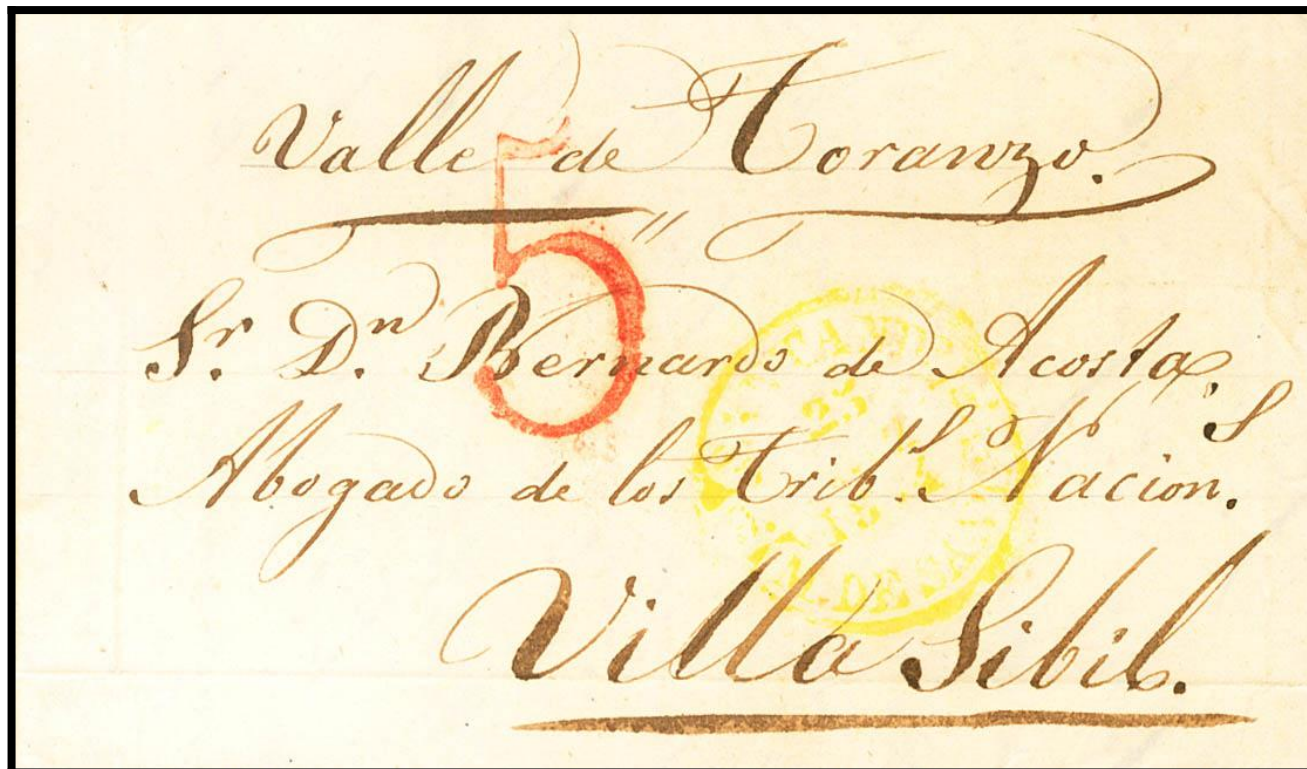 Valle de Toranzo.
5
Sr. Dn. Bernardo de Acosta,
Abogado de los Tribs. Nacion.s
25
Villa Sibil.